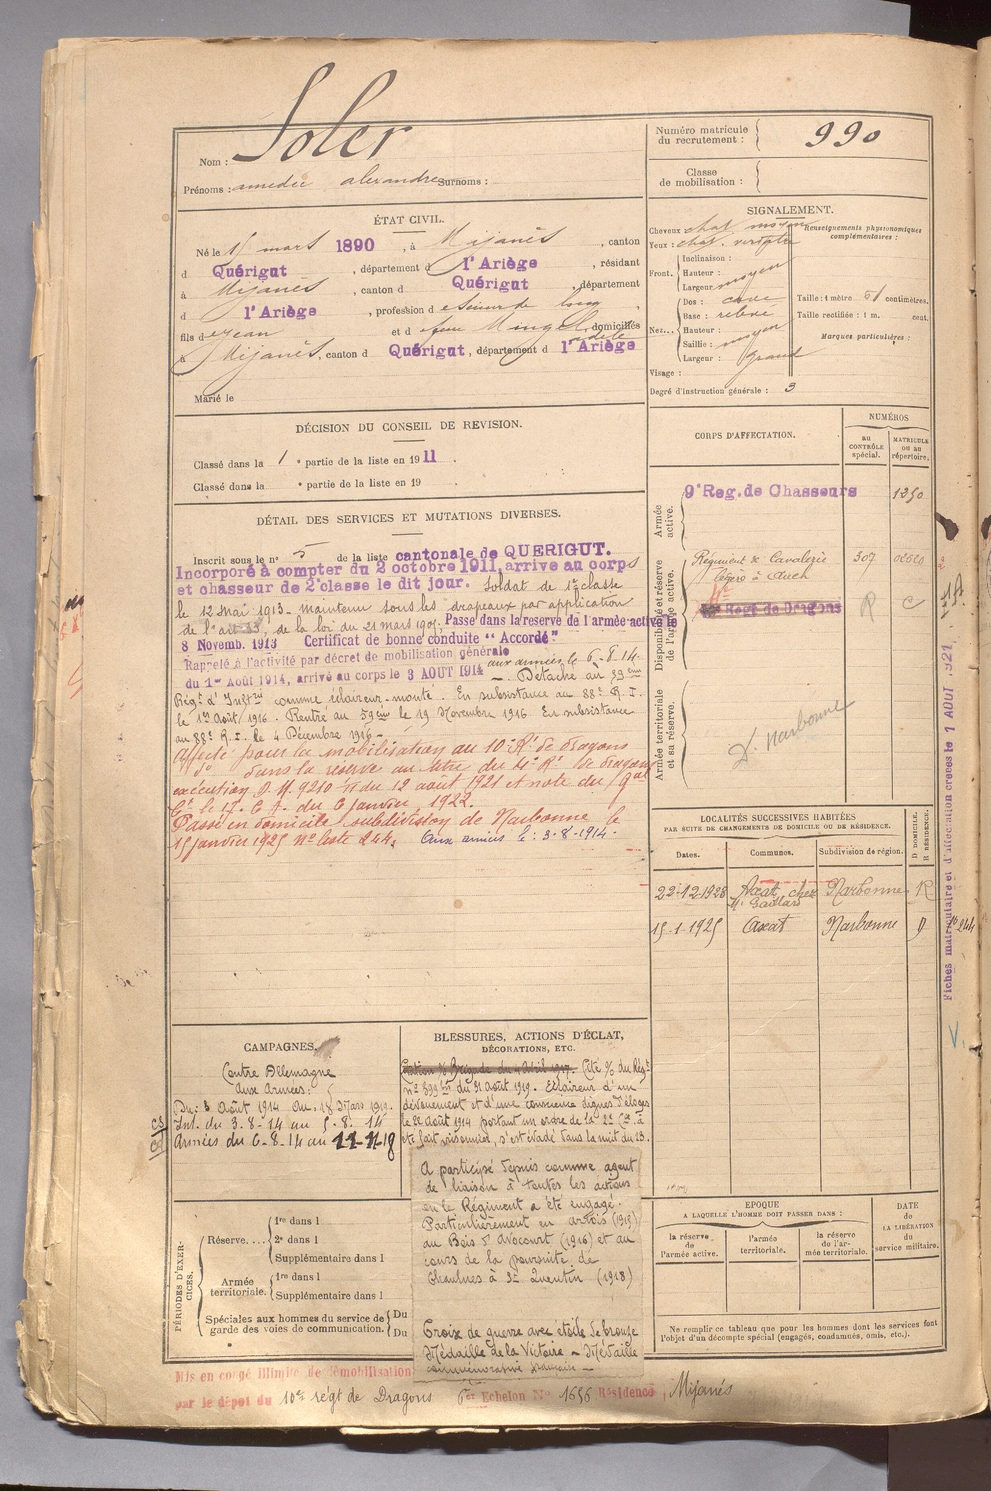 Nom : Soler
Prénoms : amedée alexandre Surnoms :
Numéro matricule du recrutement : 990
Classe de mobilisation :
ÉTAT CIVIL.
Né le 15 mars 1890, à Mijanès, canton
d Quérigut, département d l'Ariège, résidant
à Mijanès, canton d Quérigut, département
d l'Ariège, profession d scieur de long
fils d Jean et d domiciliés
à Mijanès, canton d Quérigut, département d l'Ariège
Marié le
SIGNALEMENT.
Cheveux chat. moyen
Yeux : chat. verdâtre
Renseignements physionomiques complémentaires :
Front. Inclinaison :
Hauteur : moyen
Largeur
Nez... Dos : cave
Base : relevé
Hauteur :
Saillie : moyen
Largeur : grand
Taille : 1 mètre 61 centimètres.
Taille rectifiée : 1 m. cent.
Marques particulières :
Visage :
Degré d'instruction générale : 3
DÉCISION DU CONSEIL DE REVISION.
Classé dans la 1 e partie de la liste en 1911.
Classé dans la e partie de la liste en 19 .
DÉTAIL DES SERVICES ET MUTATIONS DIVERSES.
Inscrit sous le n° 5 de la liste cantonale de QUERIGUT.
Incorporé à compter du 2 octobre 1911, arrive au corps
et chasseur de 2e classe le dit jour. Soldat de 1e classe
le 12 Mai 1913 - maintenu sous les drapeaux par application
de l'art 33, de la loi du 21 mars 1905. Passé dans la réserve de l'armée active le
8 Novemb. 1913 Certificat de bonne conduite "Accordé"
Rappelé à l'activité par décret de mobilisation générale
du 1er Août 1914, arrivé au corps le 3 AOUT 1914 aux armées le 6-8-14.
- Détaché au 59ème
Régt d'Inftrie comme éclaireur monté. En subsistance au 88e R.I.
le 1er Août 1916. Rentré au 59ème le 19 Novembre 1916 En subsistance
au 88e R.I. le 4 Décembre 1916 -
Affecté pour la mobilisation au 10e Rt de dragons
do dans la réserve au titre du 4e Rt de dragons
exécution D.M. 9210 du 12 août 1921 et note du Gal
Ct le 17e C.A. du 6 janvier 1922.
Passé en domicile subdivision de Narbonne le
15 janvier 1925 n° liste 244. Aux armées le : 3-8-1914.
CORPS D'AFFECTATION.
NUMÉROS
AU CONTRÔLE spécial.
MATRICULE OU AU répertoire.
Armée active.
9e Reg. de Chasseurs 1250
Disponibilité et réserve de l'armée active.
Régiment de Cavalerie légère à Auch 307 02520
Regt de Dragons R C
Armée territoriale et sa réserve.
D. Narbonne
LOCALITÉS SUCCESSIVES HABITÉES
PAR SUITE DE CHANGEMENTS DE DOMICILE OU DE RÉSIDENCE.
Dates. Communes. Subdivision de région. D DOMICILE. R RÉSIDENCE.
22-12-1923 Axat chez Mr Gaillard Narbonne R
15-1-1925 Axat Narbonne D n° 244
Fiches matriculaire et d'affectation créées le 1 AOUT 1921
CAMPAGNES.
Contre Allemagne
aux Armées :
Du : 3 Août 1914 au 18 Mars 1919.
Int. du 3-8-14 au 5-8-14
Armées du 6-8-14 au 11-11-18
BLESSURES, ACTIONS D'ÉCLAT,
DÉCORATIONS, ETC.
Citation Brigade du 4 Avril 1917. Cité % du Régt
du 31 août 1919. Eclaireur d'un
dévouement et d'une conscience dignes d'éloges
le 22 août 1914 portant un ordre de la 2e Cie à
été fait prisonnier, s'est évadé dans la nuit du 23.
A participé depuis comme agent
de liaison à toutes les actions
où le Régiment a été engagé.
Particulièrement en artois (1915)
au Bois d'Avocourt (1916) et au
cours de la poursuite de
Chaulnes à St Quentin (1918)
Croix de guerre avec étoile de bronze
Médaille de la Victoire - Médaille
commémorative française -
PÉRIODES D'EXERCICES.
Réserve.... 1re dans l
2e dans l
Supplémentaire dans l
Armée territoriale. 1re dans l
Supplémentaire dans l
Spéciales aux hommes du service de garde des voies de communication. Du
Du
EPOQUE
A LAQUELLE L'HOMME DOIT PASSER DANS :
la réserve de l'armée active.
l'armée territoriale.
la réserve de l'armée territoriale.
DATE de LA LIBÉRATION du service militaire.
Ne remplir ce tableau que pour les hommes dont les services font
l'objet d'un décompte spécial (engagés, condamnés, omis, etc.).
Mis en congé illimité de démobilisation
par le dépôt du 10e régt de Dragons 6er Echelon N° 1656 Résidence, Mijanés